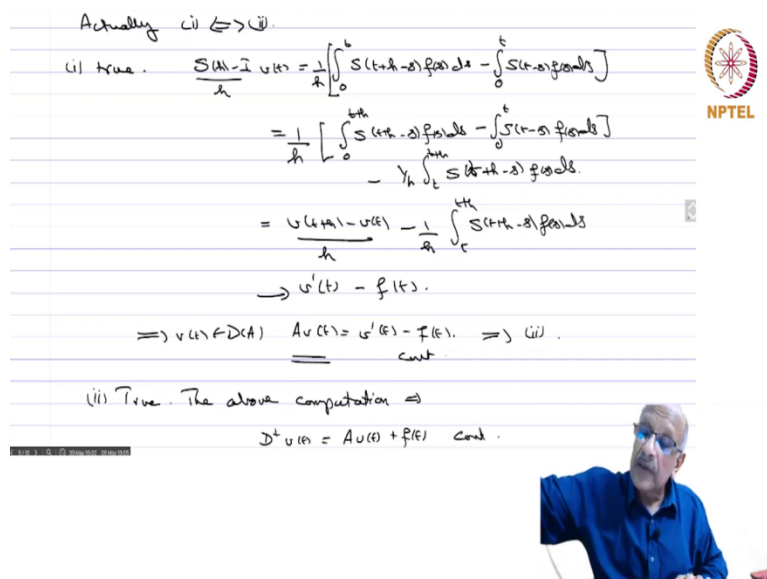 Actually (i) ⇔ (ii).
(i) true. (S(h)-I)/h v(t) = 1/h [∫_0^t S(t+h-s) f(s) ds - ∫_0^t S(t-s) f(s) ds]
NPTEL
= 1/h [∫_0^{t+h} S(t+h-s) f(s) ds - ∫_0^t S(t-s) f(s) ds]
- 1/h ∫_t^{t+h} S(t+h-s) f(s) ds.
= (v(t+h) - v(t))/h - 1/h ∫_t^{t+h} S(t+h-s) f(s) ds
→ v'(t) - f(t).
⇒ v(t) ∈ D(A) Av(t) = v'(t) - f(t). ⇒ (ii).
cont
(ii) True. The above computation ⇒
D⁺ v(t) = Av(t) + f(t) cont.